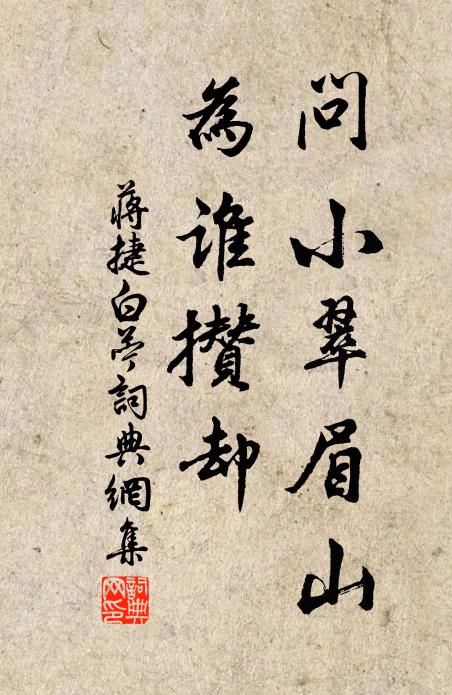 問小翠眉山
為誰攢却
蔣捷白苧詞典網集
詞典
网印